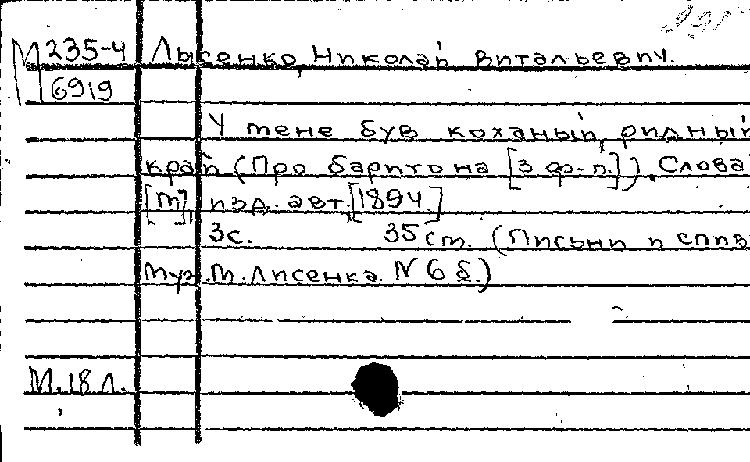 991
М 235-4 Лысенко, Николай Витальевич.
6919
У мене був коханый, ридный
край (Про баритона [з ф-п.]). Слова
[М], изд. авт. [1894]
3с. 35 см. (Письни и спив
муз. М. Лисенка N 6 б.)
М. 18 л.